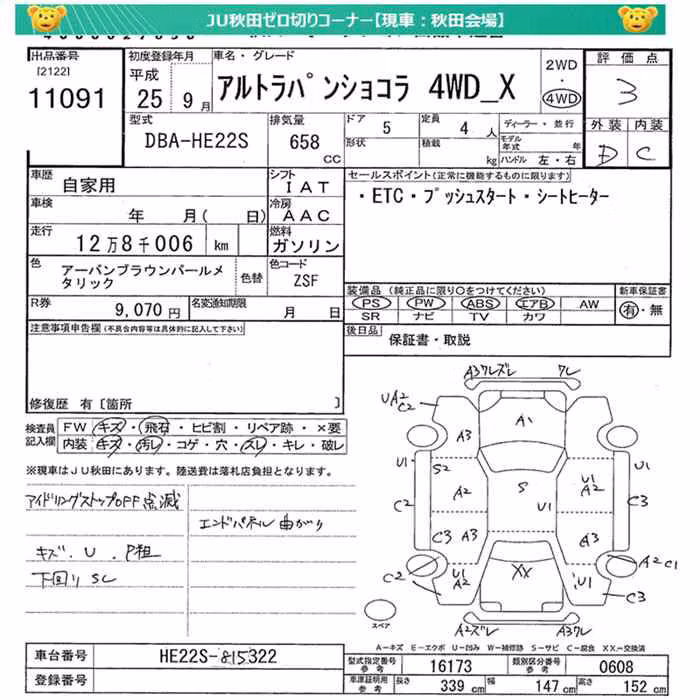 JU秋田ゼロ切りコーナー【現車：秋田会場】
出品番号
[2122]
11091
初度登録年月
平成
25 9月
車名・グレード
アルトラパンショコラ 4WD_X
2WD
・
4WD
評価点
3
外装 内装
D C
型式
DBA-HE22S
排気量
658
CC
ドア 5
定員 4 人
形状
積載 kg
ディーラー・並行
モデル年式 年
ハンドル 左・右
車歴
自家用
シフト
IAT
車検
年 月( 日)
冷房
AAC
走行
12万8千006 km
燃料
ガソリン
色
アーバンブラウンパールメタリック
色替
色コード
ZSF
R券
9,070 円
名変通知期限
月 日
セールスポイント(正常に機能するものに限ります)
・ETC・プッシュスタート・シートヒーター
装備品 (純正品に限り○をつけてください)
PS PW ABS エアB AW
SR ナビ TV カワ
新車保証書
有・無
後日品
保証書・取説
注意事項申告欄(不具合内容等は具体的に記入して下さい)
修復歴 有〔箇所 〕
検査員記入欄
FW キズ・飛石・ヒビ割・リペア跡・×要
内装 キズ・汚れ・コゲ・穴・スレ・キレ・破レ
※現車はJU秋田にあります。陸送費は落札店負担となります。
アイドリングストップOFF点滅
エンドパネル曲がり
キズ.U.P粗
下回りSC
A3ワレズレ ワレ
UA2
C2
A1
A3
U1
S2
A2
S
U1
U1
A2
U1
C2
C3
C3
A3
A3
C2
U1
A2
XX
U1
A2 C1
C3
A2ズレ
A3ワレ
スペア
A－キズ E－エクボ U－凹み W－補修跡 S－サビ C－腐食 XX－交換済
車台番号
HE22S-815322
登録番号
型式指定番号
参考
16173
類別区分番号
参考
0608
車庫証明用
参考
長さ 339 cm
幅 147 cm
高さ 152 cm